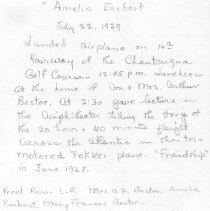 " Amelia Earhart
July 22, 1929
Landed airplane on 14th
fairway of the Chautauqua
Golf Course - 12:45 p.m. luncheon
at the home of Dr. & Mrs. Arthur
Bestor. At 2:30 gave lecture in
the Amphitheater telling the story of
the 20 hour + 40 minute flight
across the Atlantic in the tri-
motored Fokker plane "Friendship"
in June 1928.
Front Row - L-R. Mrs. A.E. Bestor, Amelia
Earhart, Mary Frances Bestor -